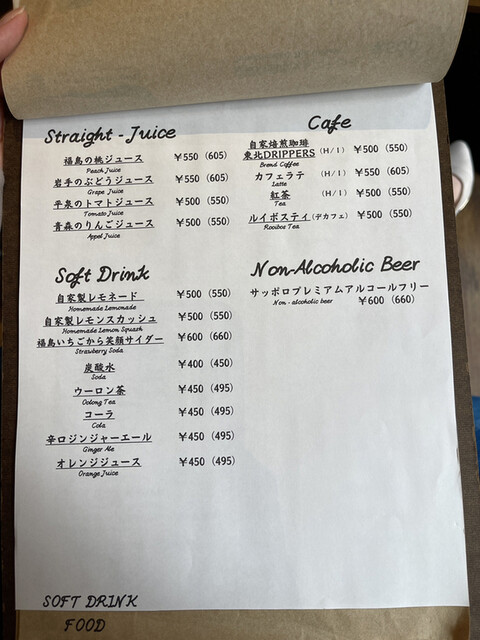 Straight - Juice
福島の桃ジュース ¥550 (605)
Peach Juice
岩手のぶどうジュース ¥550 (605)
Grape Juice
平泉のトマトジュース ¥500 (550)
Tomato Juice
青森のりんごジュース ¥500 (550)
Appel Juice
Cafe
自家焙煎珈琲
東北DRIPPERS (H/I) ¥500 (550)
Brend Coffee
カフェラテ (H/I) ¥550 (605)
Latte
紅茶 (H/I) ¥500 (550)
Tea
ルイボスティ (デカフェ) ¥500 (550)
Rooibos Tea
Soft Drink
自家製レモネード ¥500 (550)
Homemade Lemonade
自家製レモンスカッシュ ¥500 (550)
Homemade Lemon Squash
福島いちごから笑顔サイダー ¥600 (660)
Strawberry Soda
炭酸水 ¥400 (450)
Soda
ウーロン茶 ¥450 (495)
Oolong Tea
コーラ ¥450 (495)
Cola
辛口ジンジャーエール ¥450 (495)
Ginger Ale
オレンジジュース ¥450 (495)
Orange Juice
Non-Alcoholic Beer
サッポロプレミアムアルコールフリー
Non - alcoholic beer ¥600 (660)
SOFT DRINK
FOOD